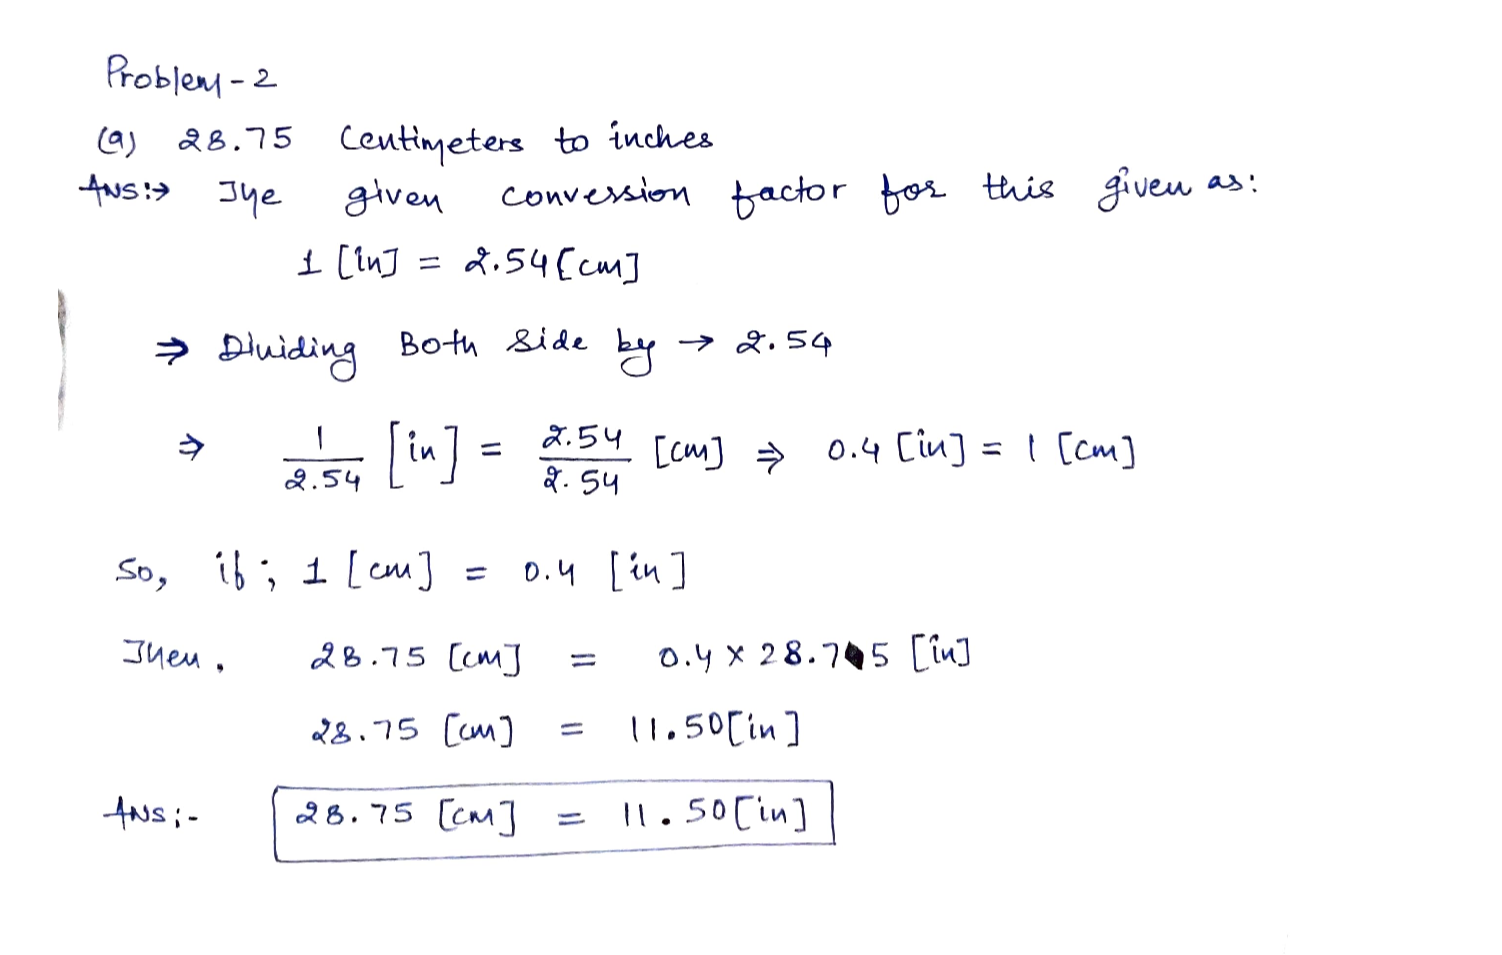 Problem - 2
(a) 28.75 Centimeters to inches
Ans:→ The given conversion factor for this given as:
1 [in] = 2.54 [cm]
⇒ Dividing Both side by → 2.54
⇒ 1/2.54 [in] = 2.54/2.54 [cm] ⇒ 0.4 [in] = 1 [cm]
So, if ; 1 [cm] = 0.4 [in]
Then, 28.75 [cm] = 0.4 × 28.75 [in]
28.75 [cm] = 11.50 [in]
Ans:- 28.75 [cm] = 11.50 [in]